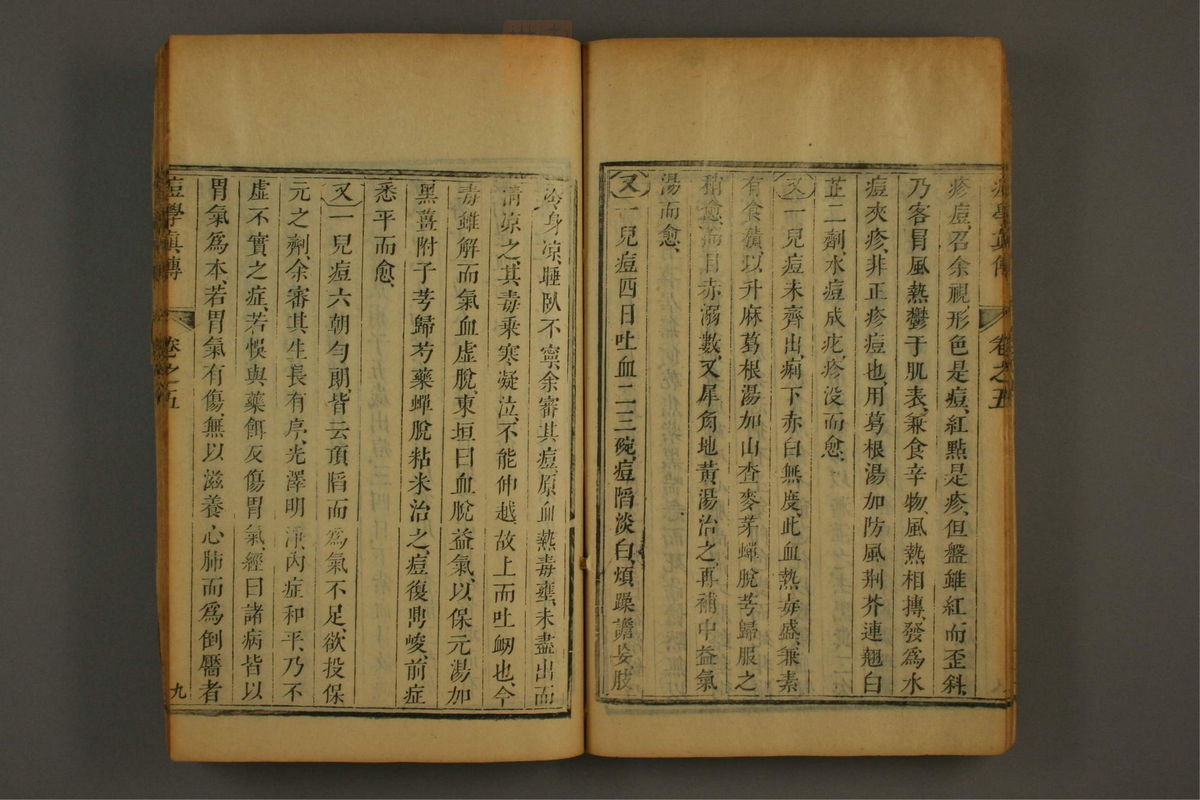 疹痘召余視形色是痘紅點是疹但盤雖紅而歪斜
乃客冒風熱鬱于肌表兼食辛物風熱相搏發爲水
痘夾疹非正疹痘也用葛根湯加防風荆芥連翹白
芷二劑水痘成疕疹没而愈
又一兒痘未齊出痢下赤白無度此血熱毒盛兼素
有食積以升麻葛根湯加山查麥芽蟬脫芎歸服之
稍愈而目赤溺數又犀角地黃湯治之再補中益氣
湯而愈
又一兒痘四日吐血二三碗痘陷淡白煩躁譫妄肢
冷身凉睡臥不寧余審其痘原血熱毒壅未盡出而
清凉之其毒乘寒凝泣不能伸越故上而吐衂也今
毒雖解而氣血虛脫東垣曰血脫益氣以保元湯加
黑薑附子芎歸芍藥蟬脫粘米治之痘復鼎峻前症
悉平而愈
又一兒痘六朝勻朗皆云頂陷而爲氣不足欲投保
元之劑余審其生長有序光澤明淨內症和平乃不
虛不實之症若悞與藥餌反傷胃氣經曰諸病皆以
胃氣爲本若胃氣有傷無以滋養心肺而爲倒靨者
痘學眞傳 卷之五 九